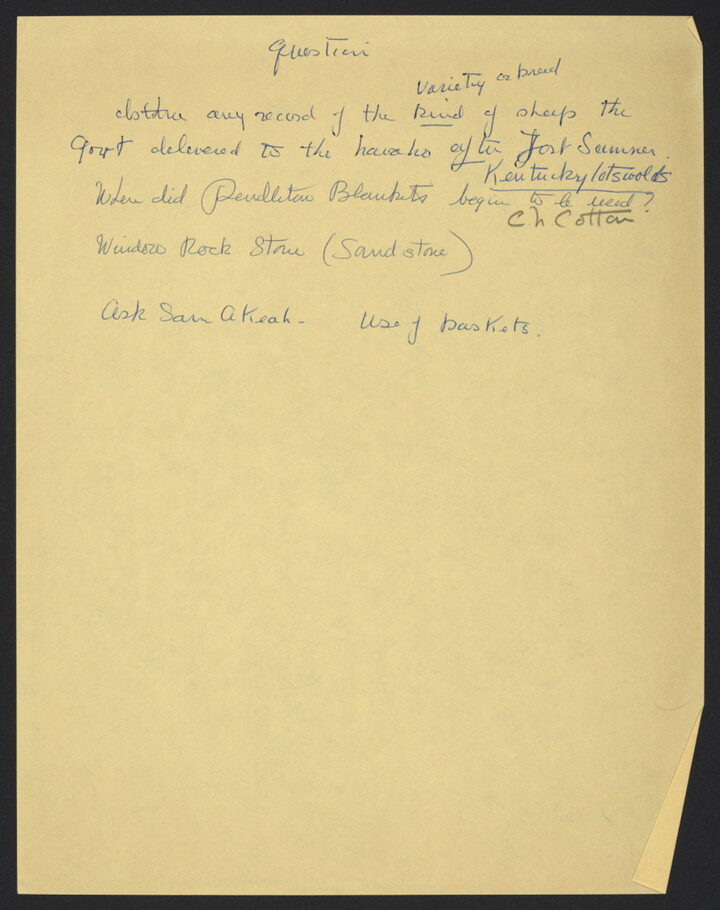 Question
variety or breed
Is there any record of the kind of sheep the
Gov't delivered to the navaho after Fort Sumner.
Kentucky Cotswolds
When did Pendleton Blankets begin to be used?
C. N Cotton
Window Rock Stone (Sandstone)
Ask Sam AKeah - Use of baskets.